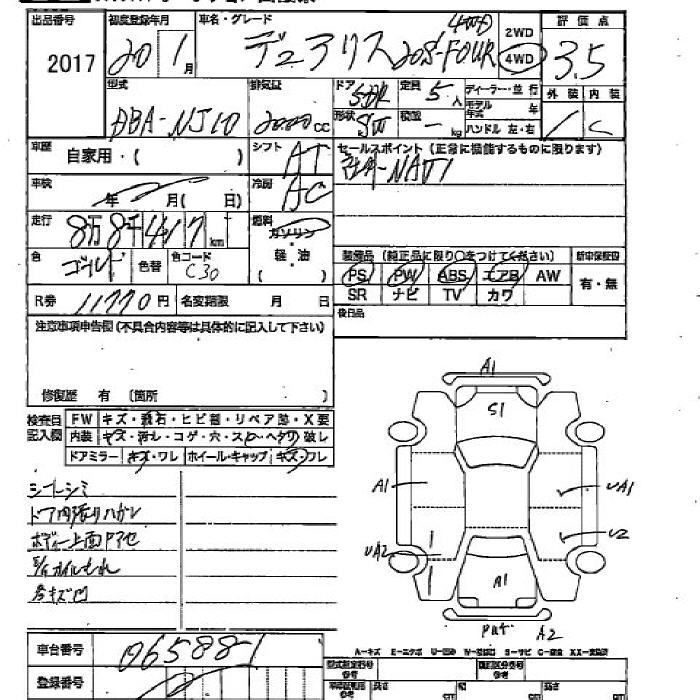 出品番号 初度登録年月 車名・グレード 評価点
2017 20年1月 デュアリス 20S-FOUR 4WD 2WD 4WD 3.5
型式 排気量 ドア 5DR 定員 5人 ディーラー・並行 外装 内装
DBA-NJ10 2000cc 形状 SW 積量 - kg モデル年式 年 ハンドル 左・右 C
車歴 自家用・( ) シフト AT セールスポイント(正常に機能するものに限ります)
NAVI
車検 年 月( 日) 冷房 AC
走行 8万8千417km 燃料 ガソリン 軽油 ( )
色 ゴールド 色替 色コード C30 装備品(純正品に限り○をつけてください) 新車保証書
PS PW ABS エアB AW 有・無
SR ナビ TV カワ
R券 11770円 名変期限 月 日 後日品
注意事項申告欄(不具合内容等は具体的に記入して下さい)
修復歴 有 〔箇所 〕
検査員記入欄 FW キズ・飛石・ヒビ割・リペア跡・X要
内装 キズ・汚れ・コゲ・穴・スレ・ヘタり・破レ
ドアミラー キズ・ワレ ホイール・キャップ キズ・ワレ
シートシミ
ドア内張りハガレ
ボディー上面
オイルもれ
各キズ凹
A1
S1
A1
A1
U2
UA2
A1
A2
A-キズ
車台番号 065881
登録番号
型式指定番号 参考 類別区分番号 参考
長さ 幅 高さ